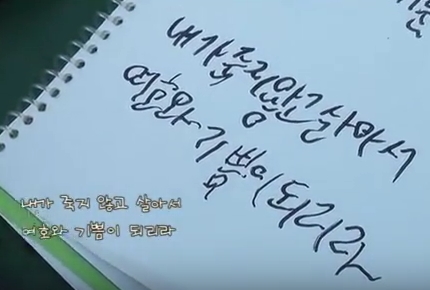 내가 죽지 않고 살아서
여호와 기쁨이 되리라
내가 죽지 않고 살아서
여호와 기쁨이 되리라